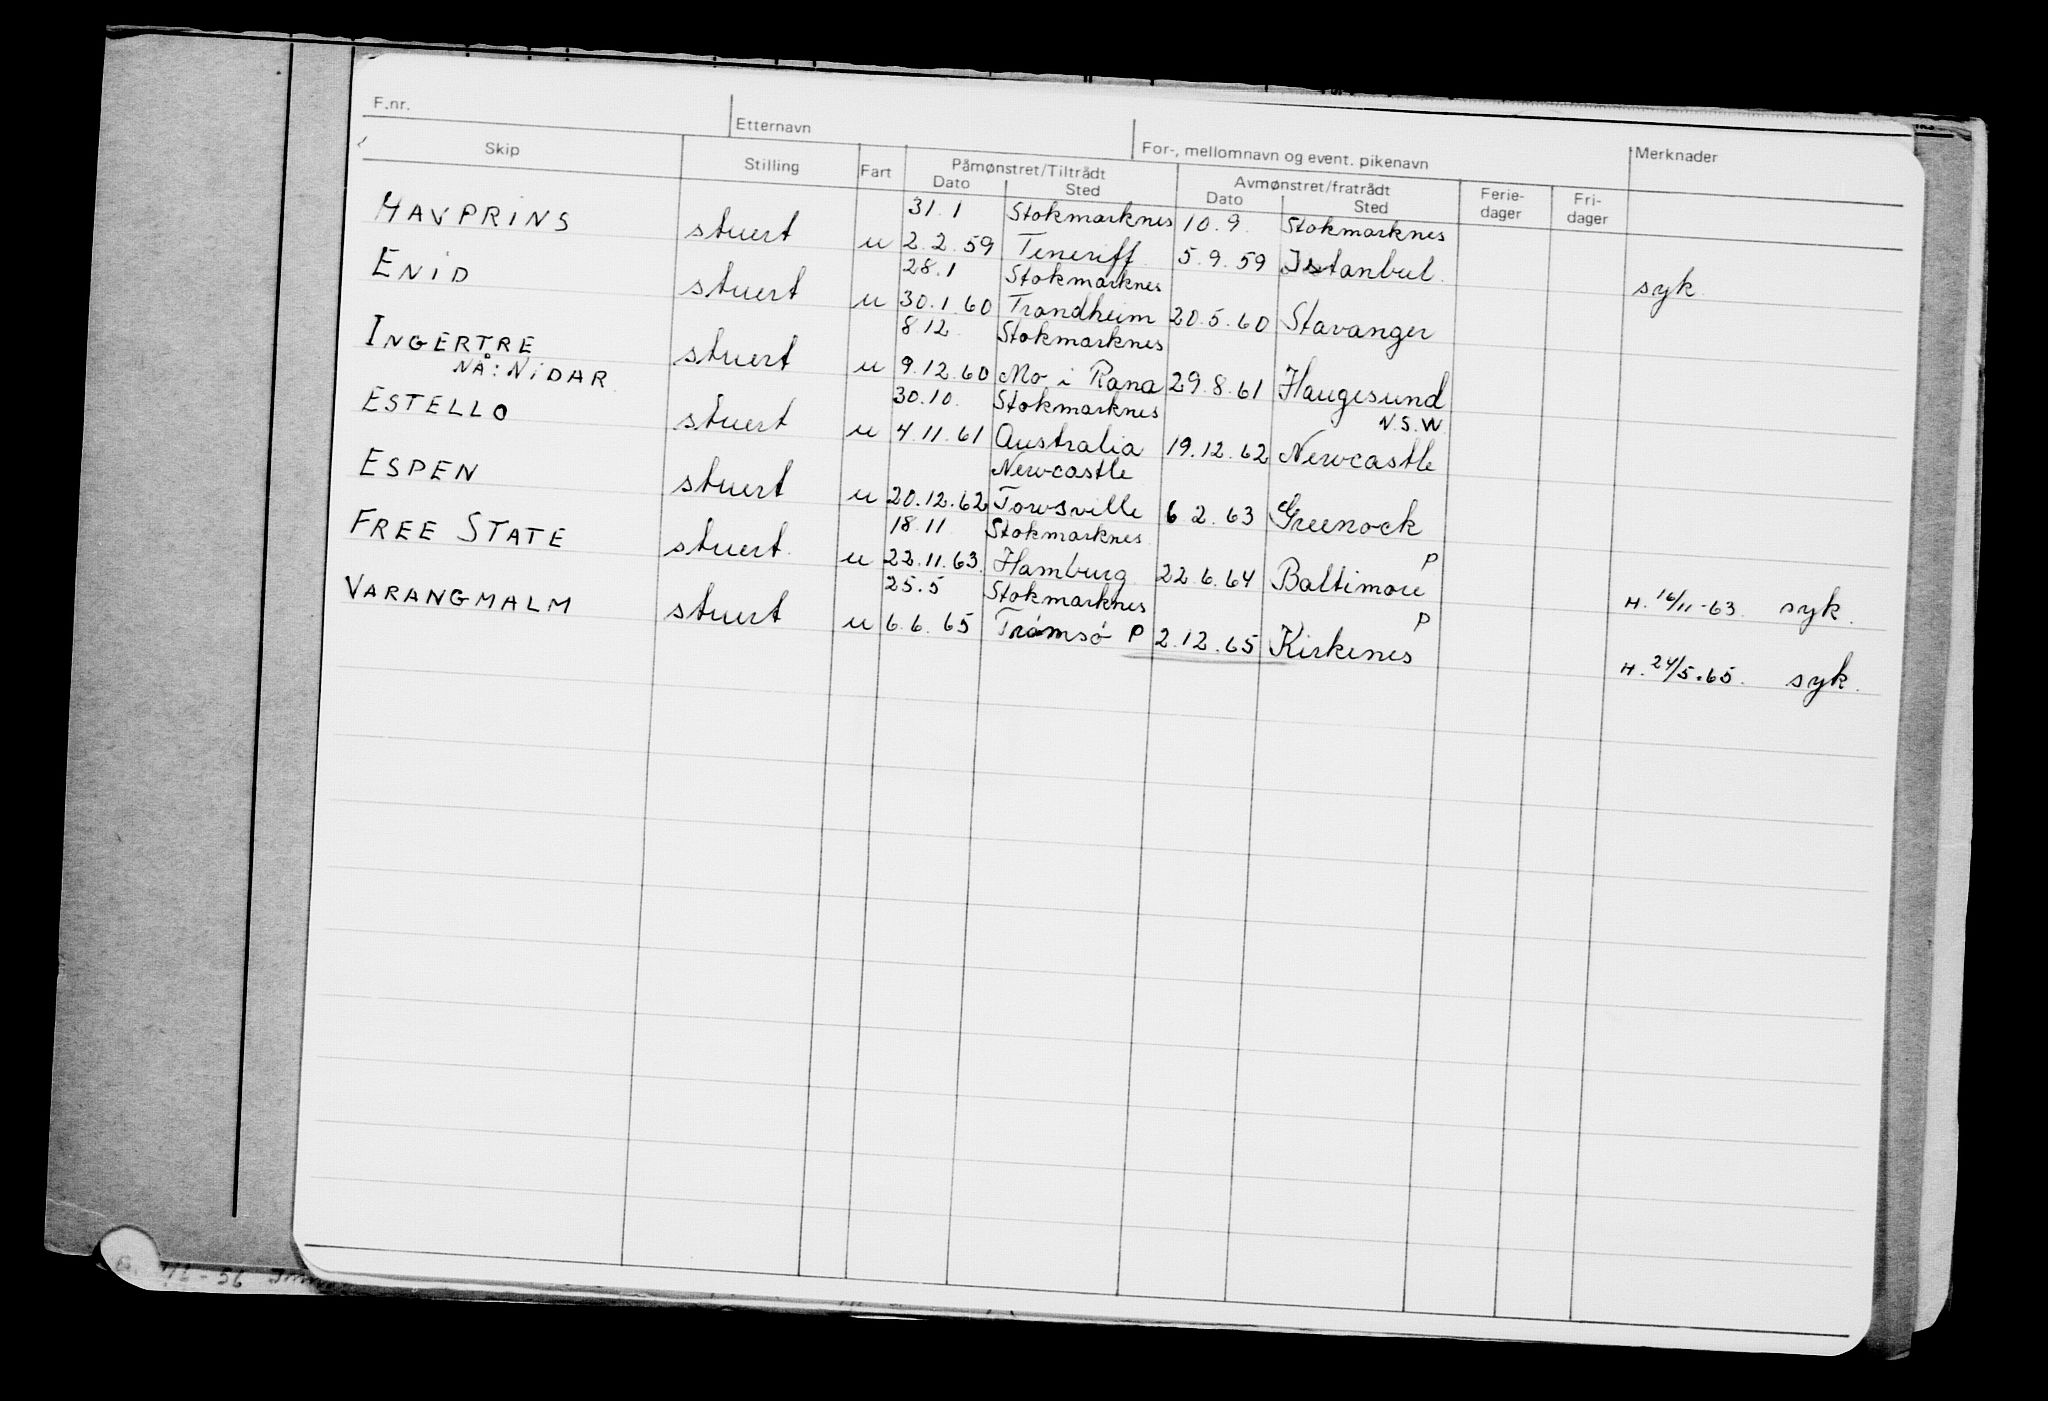 F.nr. Etternavn For-, mellomnavn og event. pikenavn Merknader
Skip Stilling Fart Påmønstret/Tiltrådt Avmønstret/fratrådt Ferie- Fri-
Dato Sted Dato Sted dager dager
31.1 Stokmarknes 10.9. Stokmarknes
HAVPRINS stuert u 2.2.59 Teneriff. 5.9.59 Istanbul. syk.
28.1 Stokmarknes
ENID stuert u 30.1.60 Trondheim 20.5.60 Stavanger
8.12. Stokmarknes
INGERTRE stuert u 9.12.60 Mo i Rana 29.8.61 Haugesund
NÅ: NIDAR
30.10. Stokmarknes N.S.W.
ESTELLO stuert u 4.11.61 Australia 19.12.62 Newcastle
Newcastle
ESPEN stuert u 20.12.62 Towsville 6 2.63 Greenock
18.11 Stokmarknes. P
FREE STATE stuert. u 22.11.63. Hamburg. 22.6.64 Baltimore H. 16/11-63. syk.
25.5 Stokmarknes P
VARANGMALM stuert u 6.6.65 Tromsö P 2.12.65 Kirkenes H. 24/5.65. syk.
- 56